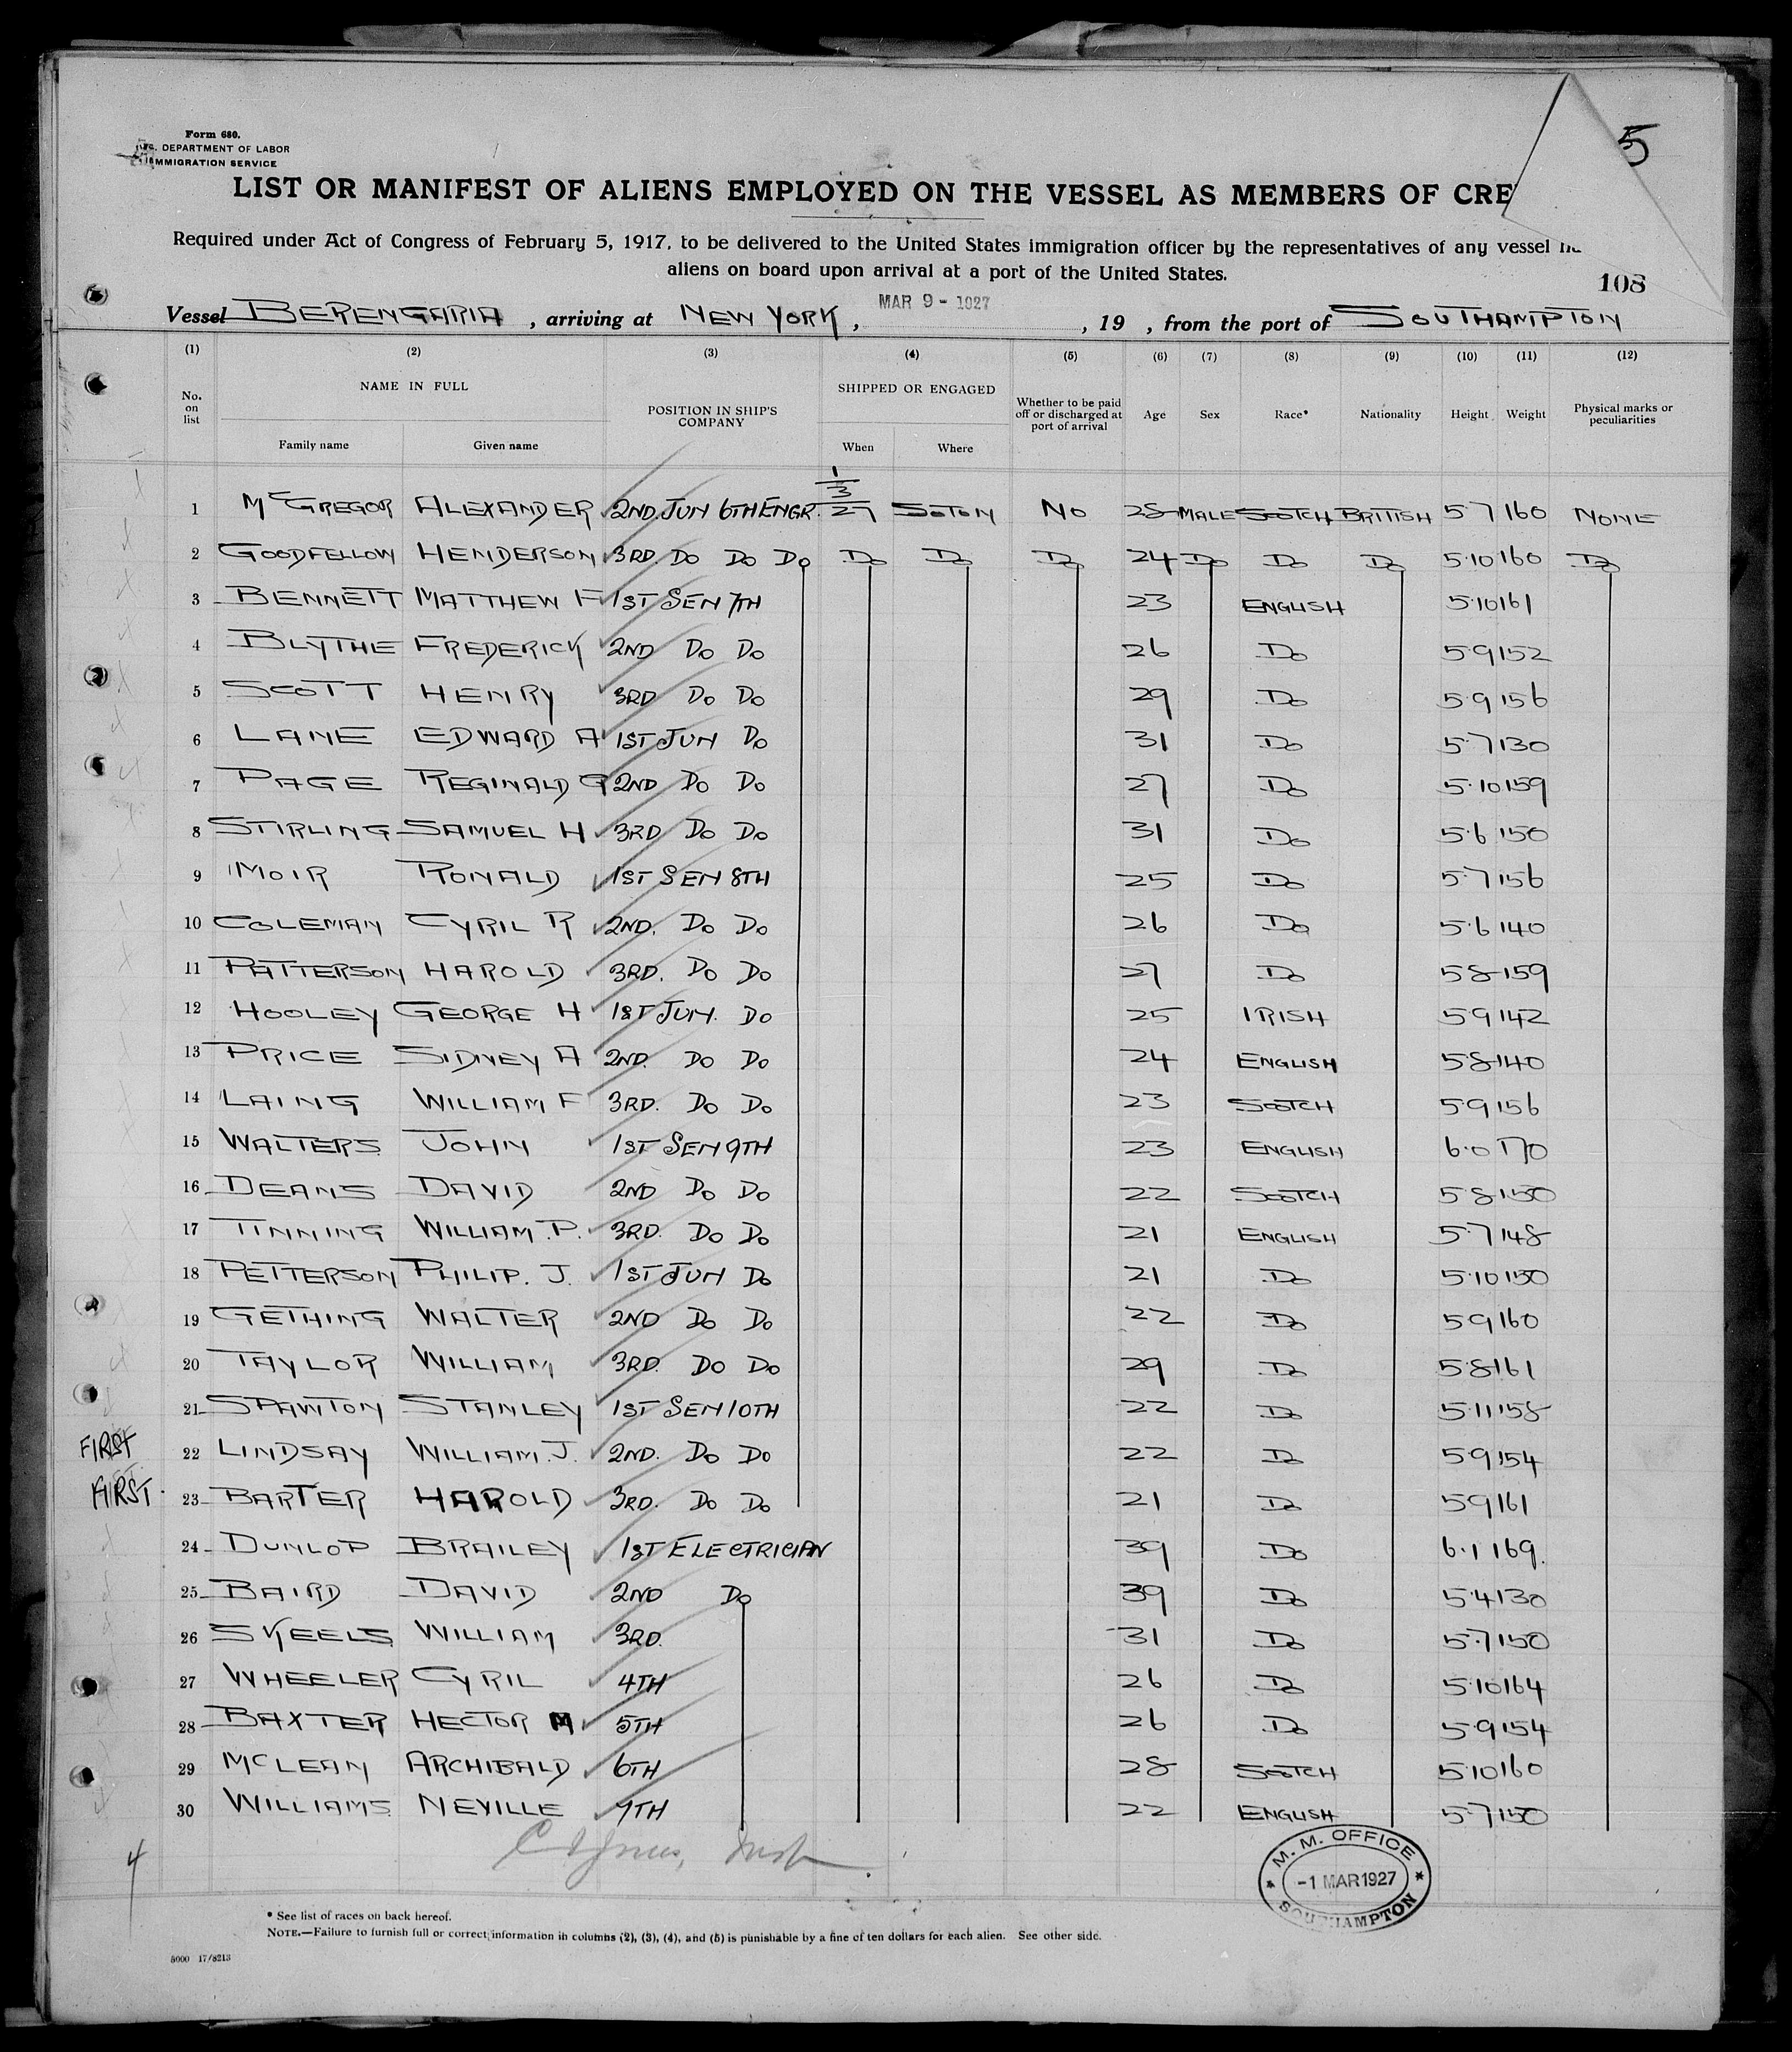 5
Form 680.
U.S. DEPARTMENT OF LABOR
IMMIGRATION SERVICE
LIST OR MANIFEST OF ALIENS EMPLOYED ON THE VESSEL AS MEMBERS OF CRE
Required under Act of Congress of February 5, 1917, to be delivered to the United States immigration officer by the representatives of any vessel
aliens on board upon arrival at a port of the United States.
108
Vessel BERENGARIA, arriving at NEW YORK, MAR 9 - 1927, 19 , from the port of SOUTHAMPTON
(1) (2) (3) (4) (5) (6) (7) (8) (9) (10) (11) (12)
No. on list NAME IN FULL Family name Given name POSITION IN SHIP'S COMPANY SHIPPED OR ENGAGED When Where Whether to be paid off or discharged at port of arrival Age Sex Race* Nationality Height Weight Physical marks or peculiarities
1 McGREGOR ALEXANDER 2ND JUN 6TH ENGR. 1/3/27 SOTON NO 28 MALE SCOTCH BRITISH 5 7 160 NONE
2 GOODFELLOW HENDERSON 3RD. DO DO DO DO DO DO 24 DO DO DO 5·10 160 DO
3 BENNETT MATTHEW F 1ST SEN 7TH 23 ENGLISH 5·10 161
4 BLYTHE FREDERICK 2ND DO DO 26 DO 5·9 152
5 SCOTT HENRY 3RD DO DO 29 DO 5·9 156
6 LANE EDWARD A 1ST JUN DO 31 DO 5·7 130
7 PAGE REGINALD G 2ND DO DO 27 DO 5·10 159
8 STIRLING SAMUEL H 3RD DO DO 31 DO 5·6 150
9 MOIR RONALD 1ST SEN 8TH 25 DO 5·7 156
10 COLEMAN CYRIL R 2ND. DO DO 26 DO 5·6 140
11 PATTERSON HAROLD 3RD. DO DO 27 DO 5 8 159
12 HOOLEY GEORGE H 1ST JUN. DO 25 IRISH 5 9 142
13 PRICE SIDNEY A 2ND. DO DO 24 ENGLISH 5·8 140
14 LAING WILLIAM F 3RD. DO DO 23 SCOTCH 5 9 156
15 WALTERS JOHN 1ST SEN 9TH 23 ENGLISH 6·0 170
16 DEANS DAVID 2ND DO DO 22 SCOTCH 5·8 150
17 TINNING WILLIAM.P. 3RD. DO DO 21 ENGLISH 5·7 148
18 PETTERSON PHILIP. J. 1ST JUN DO 21 DO 5·10 150
19 GETHING WALTER 2ND DO DO 22 DO 5 9 160
20 TAYLOR WILLIAM 3RD. DO DO 29 DO 5·8 161
21 SPAWTON STANLEY 1ST SEN 10TH 22 DO 5·11 158
FIRST 22 LINDSAY WILLIAM.J. 2ND. DO DO 22 DO 5·9 154
FIRST. 23 BARTER HAROLD 3RD. DO DO 21 DO 5 9 161
24 DUNLOP BRAILEY 1ST ELECTRICIAN 39 DO 6·1 169.
25 BAIRD DAVID 2ND DO 39 DO 5·4 130
26 SKEELS WILLIAM 3RD. 31 DO 5·7 150
27 WHEELER CYRIL 4TH 26 DO 5·10 164
28 BAXTER HECTOR M 5TH 26 DO 5·9 154
29 McLEAN ARCHIBALD 6TH 28 SCOTCH 5·10 160
30 WILLIAMS NEVILLE 7TH 22 ENGLISH 5·7 150
4
M. M. OFFICE
-1 MAR 1927
SOUTHAMPTON
* See list of races on back hereof.
NOTE.—Failure to furnish full or correct information in columns (2), (3), (4), and (5) is punishable by a fine of ten dollars for each alien. See other side.
5000 17/8213